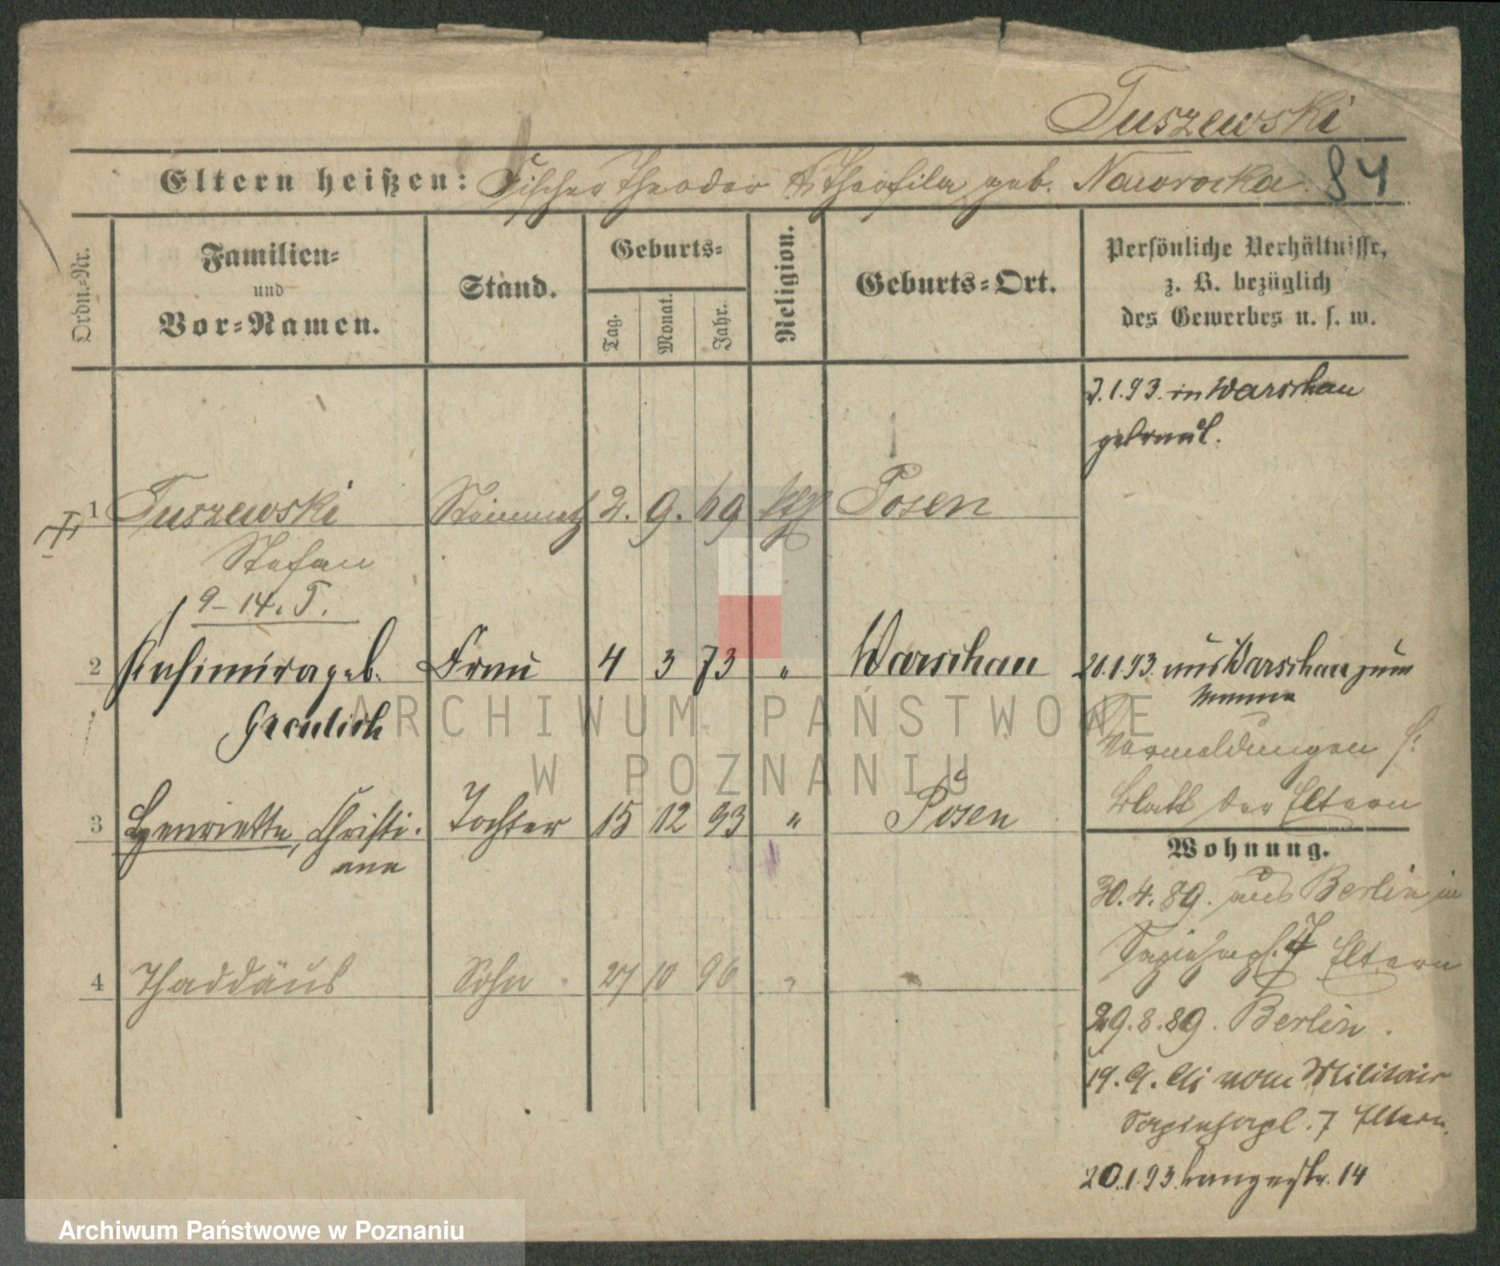 Tuszewski
84
Eltern heißen: Fischer Theodor & Theofila, geb. Nawrocka.
Ordn.-Nr.
Familien-
und
Vor-Namen.
Stand.
Geburts-
Tag.
Monat.
Jahr.
Religion.
Geburts-Ort.
Persönliche Verhältnisse,
z. B. bezüglich
des Gewerbes u. s. w.
7.1.93. in Warschau
getraut.
1 Tuszewski 2. 9. 69 ktl Posen
Stefan
9-14. T.
2 Kasimira geb. Frau 4 3 73 " Warschau
Greulich
20.1.93. aus Warschau zum
Manne
Vormeldungen s.
Blatt der Eltern
3 Henriette, Christi- Tochter 15 12 93 " Posen
ane
Wohnung.
30.4.89. aus Berlin in
Sapiehapl. 7 Eltern
4 Thaddäus Sohn 27 10 96 "
29.8.89. Berlin.
19.9. vom Militair
Sapiehapl. 7 Eltern.
20.1.93. Langestr. 14
ARCHIWUM PAŃSTWOWE
W POZNANIU
Archiwum Państwowe w Poznaniu